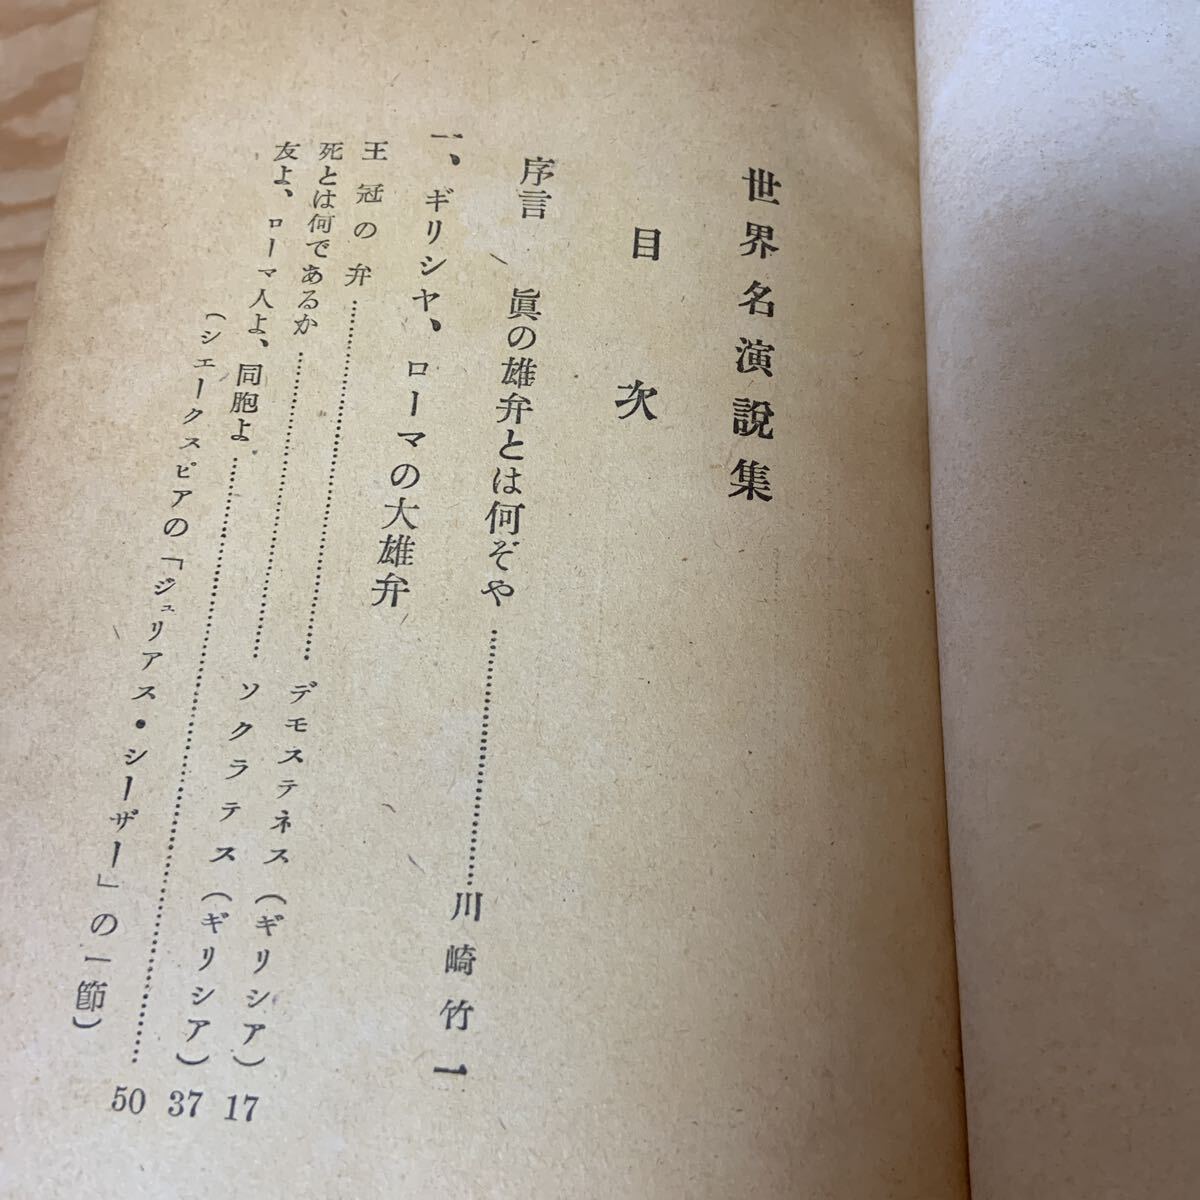 世界名演説集
目次
序言　眞の雄弁とは何ぞや……………川崎竹一
一、ギリシヤ、ローマの大雄弁
王冠の弁……………デモステネス（ギリシア）17
死とは何であるか……………ソクラテス（ギリシア）37
友よ、ローマ人よ、同胞よ……………50
（シェークスピアの「ジュリアス・シーザー」の一節）